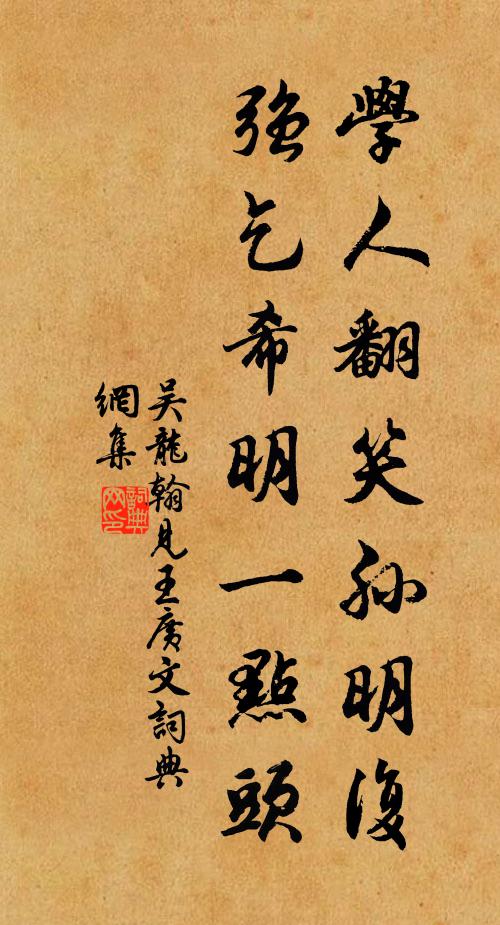 學人翻笑孫明復
強乞希明一點頭
吳龍翰見王廣文詞典
網集
詞典網印